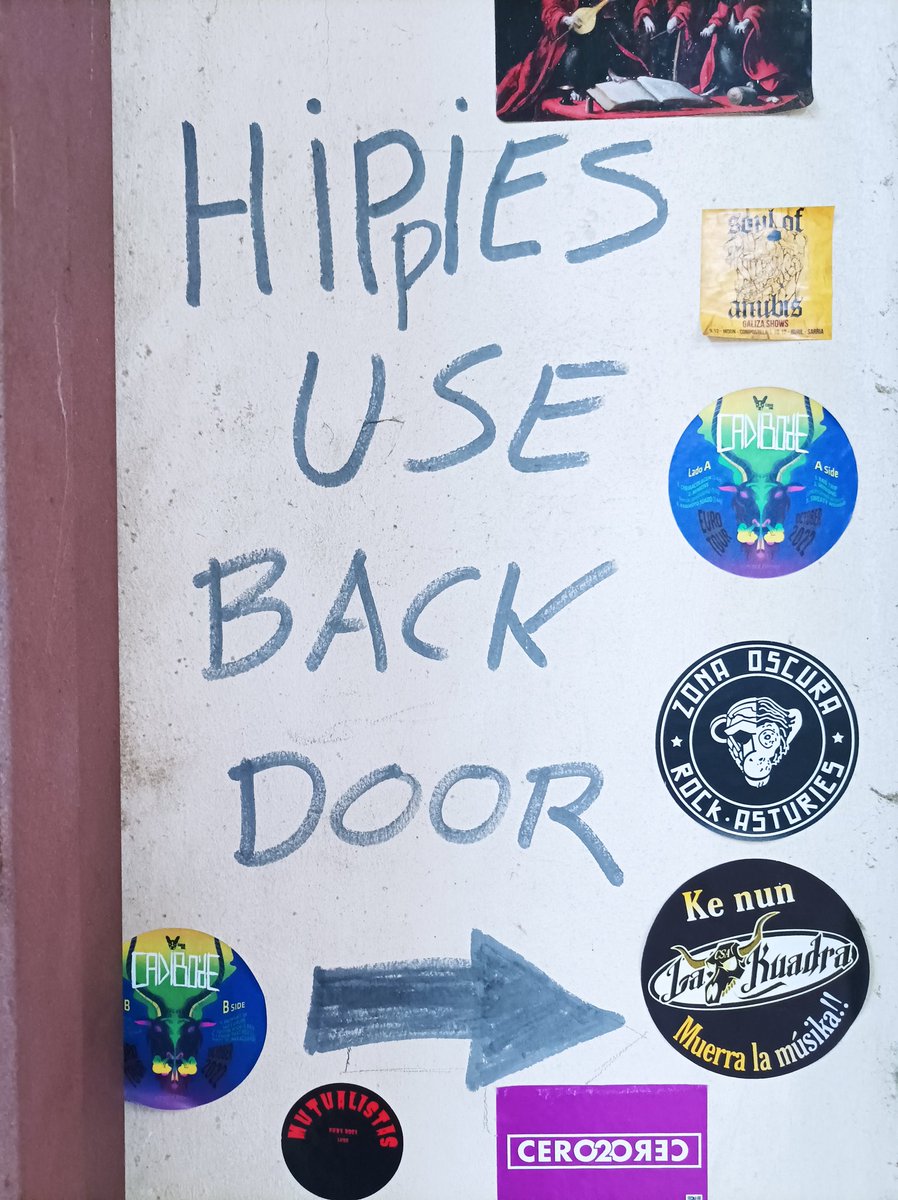 HiPpiES
USE
BACK
DOOR
soul of
anubis
GALIZA SHOWS
CADIBODE
Lado A
A Side
EURO
TOUR
OCTOBER
2022
ZONA OSCURA
ROCK · ASTURIES
Ke nun
CSA
La Kuadra
Muerra la músika!!
CADIBODE
B
B SIDE
MUTUALISTAS
CERO2OREC